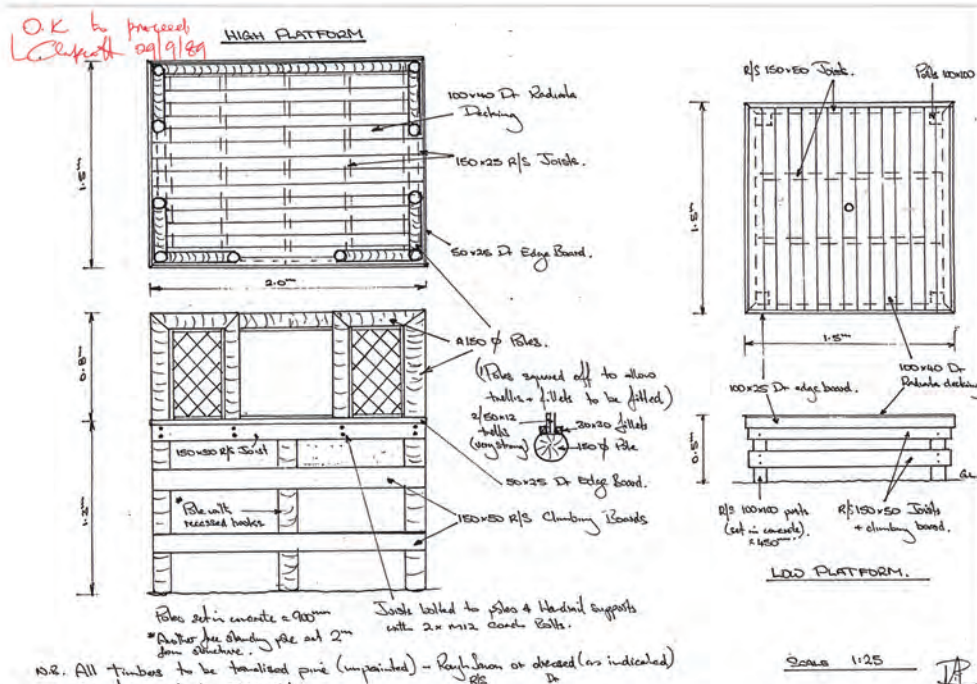 O.K to proceed
29/9/89
HIGH PLATFORM
1.5m
100x40 Dr Radiata
Decking
150x25 R/S Joists.
50x25 Dr Edge Board.
2.0m
0.8m
1.2m
A150 φ Poles.
(Poles squared off to allow
trellis + fillets to be fitted)
2/50x12
trellis
(very strong)
20x20 fillets
150 φ Pole
150x50 R/S Joist
50x25 Dr Edge Board.
*Pole with
recessed hooks
150x50 R/S Climbing Boards
Poles set in concrete = 900mm
*Another free standing pole set 2m
from structure.
Joists bolted to poles & Handrail Supports
with 2x M12 Coach Bolts.
N.B. All Timbers to be tanalised pine (unpainted) - Rough Sawn or dressed (as indicated)
R/S Dr
R/S 150x50 Joists.
Posts 100x100
1.5m
1.5m
100x25 Dr edge board.
100x40 Dr
Radiata decking
R/S 100x100 posts
(set in concrete)
x 450mm
R/S 150x50 Joists
+ climbing board.
LOW PLATFORM.
SCALE 1:25